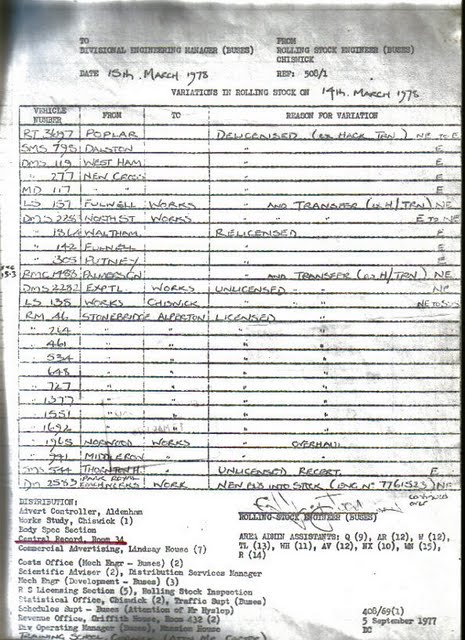 TO FROM
DIVISIONAL ENGINEERING MANAGER (BUSES) ROLLING STOCK ENGINEER (BUSES)
CHISWICK
DATE 15th. MARCH 1978 REF: 508/1
VARIATIONS IN ROLLING STOCK ON 14th. MARCH 1978
VEHICLE NUMBER FROM TO REASON FOR VARIATION
RT 3697 POPLAR DELICENSED (ex HACK TRN) NE to E
SMS 798 DALSTON " E
DMS 119 WEST HAM " E
" 277 NEW CROSS " E
MD 117 " " " E
LS 137 FULWELL WORKS " AND TRANSFER (ex H/TRN) NE
DMS 228 NORTH ST WORKS " E to NE
" 1864 WALTHAM RELICENSED E
" 142 FULWELL " E
" 305 PUTNEY " E
RMC 1488 PALMERSON " AND TRANSFER (ex H/TRN) NE
DMS 2282 EXPTL WORKS UNLICENSED " NE
LS 135 WORKS CHISWICK " "
RM 46 STONEBRIDGE ALPERTON LICENSED "
" 264 " " " "
" 461 " " " "
" 534 " " " "
" 648 " " " "
" 727 " " " "
" 1377 " " " "
" 1551 " " " "
" 1692 " " " "
" 1963 NORWOOD WORKS " OVERHAUL
" 941 MIDDLEROW " "
THORNTON H " UNLICENSED RECERT. E
DM 2583 PARK ROYAL COACHWORKS WORK NEW BUS INTO STOCK (ENG No 7761523) NE
CONTINUED OVER
DISTRIBUTION:
Advert Controller, Aldenham
Works Study, Chiswick (1) ROLLING-STOCK ENGINEER (BUSES)
Body Spec Section
Central Record, Room 34 AREA ADMIN ASSISTANTS: Q (9), AR (12), W (12),
Commercial Advertising, Lindsay House (7) TL (13), WH (11), AV (12), NX (10), MN (15),
R (14)
Costs Office (Mech Engr - Buses) (2)
Scientific Adviser (2), Distribution Services Manager
Mech Engr (Development - Buses) (3)
R S Licensing Section (5), Rolling Stock Inspection
Statistical Office, Chiswick (2), Traffic Supt (Buses)
Schedules Supt - Buses (Attention of Mr Hyslop) 408/69(1)
Revenue Office, Griffith House, Room 432 (2) 5 September 1977
Div Operating Manager (Buses), Mansion House